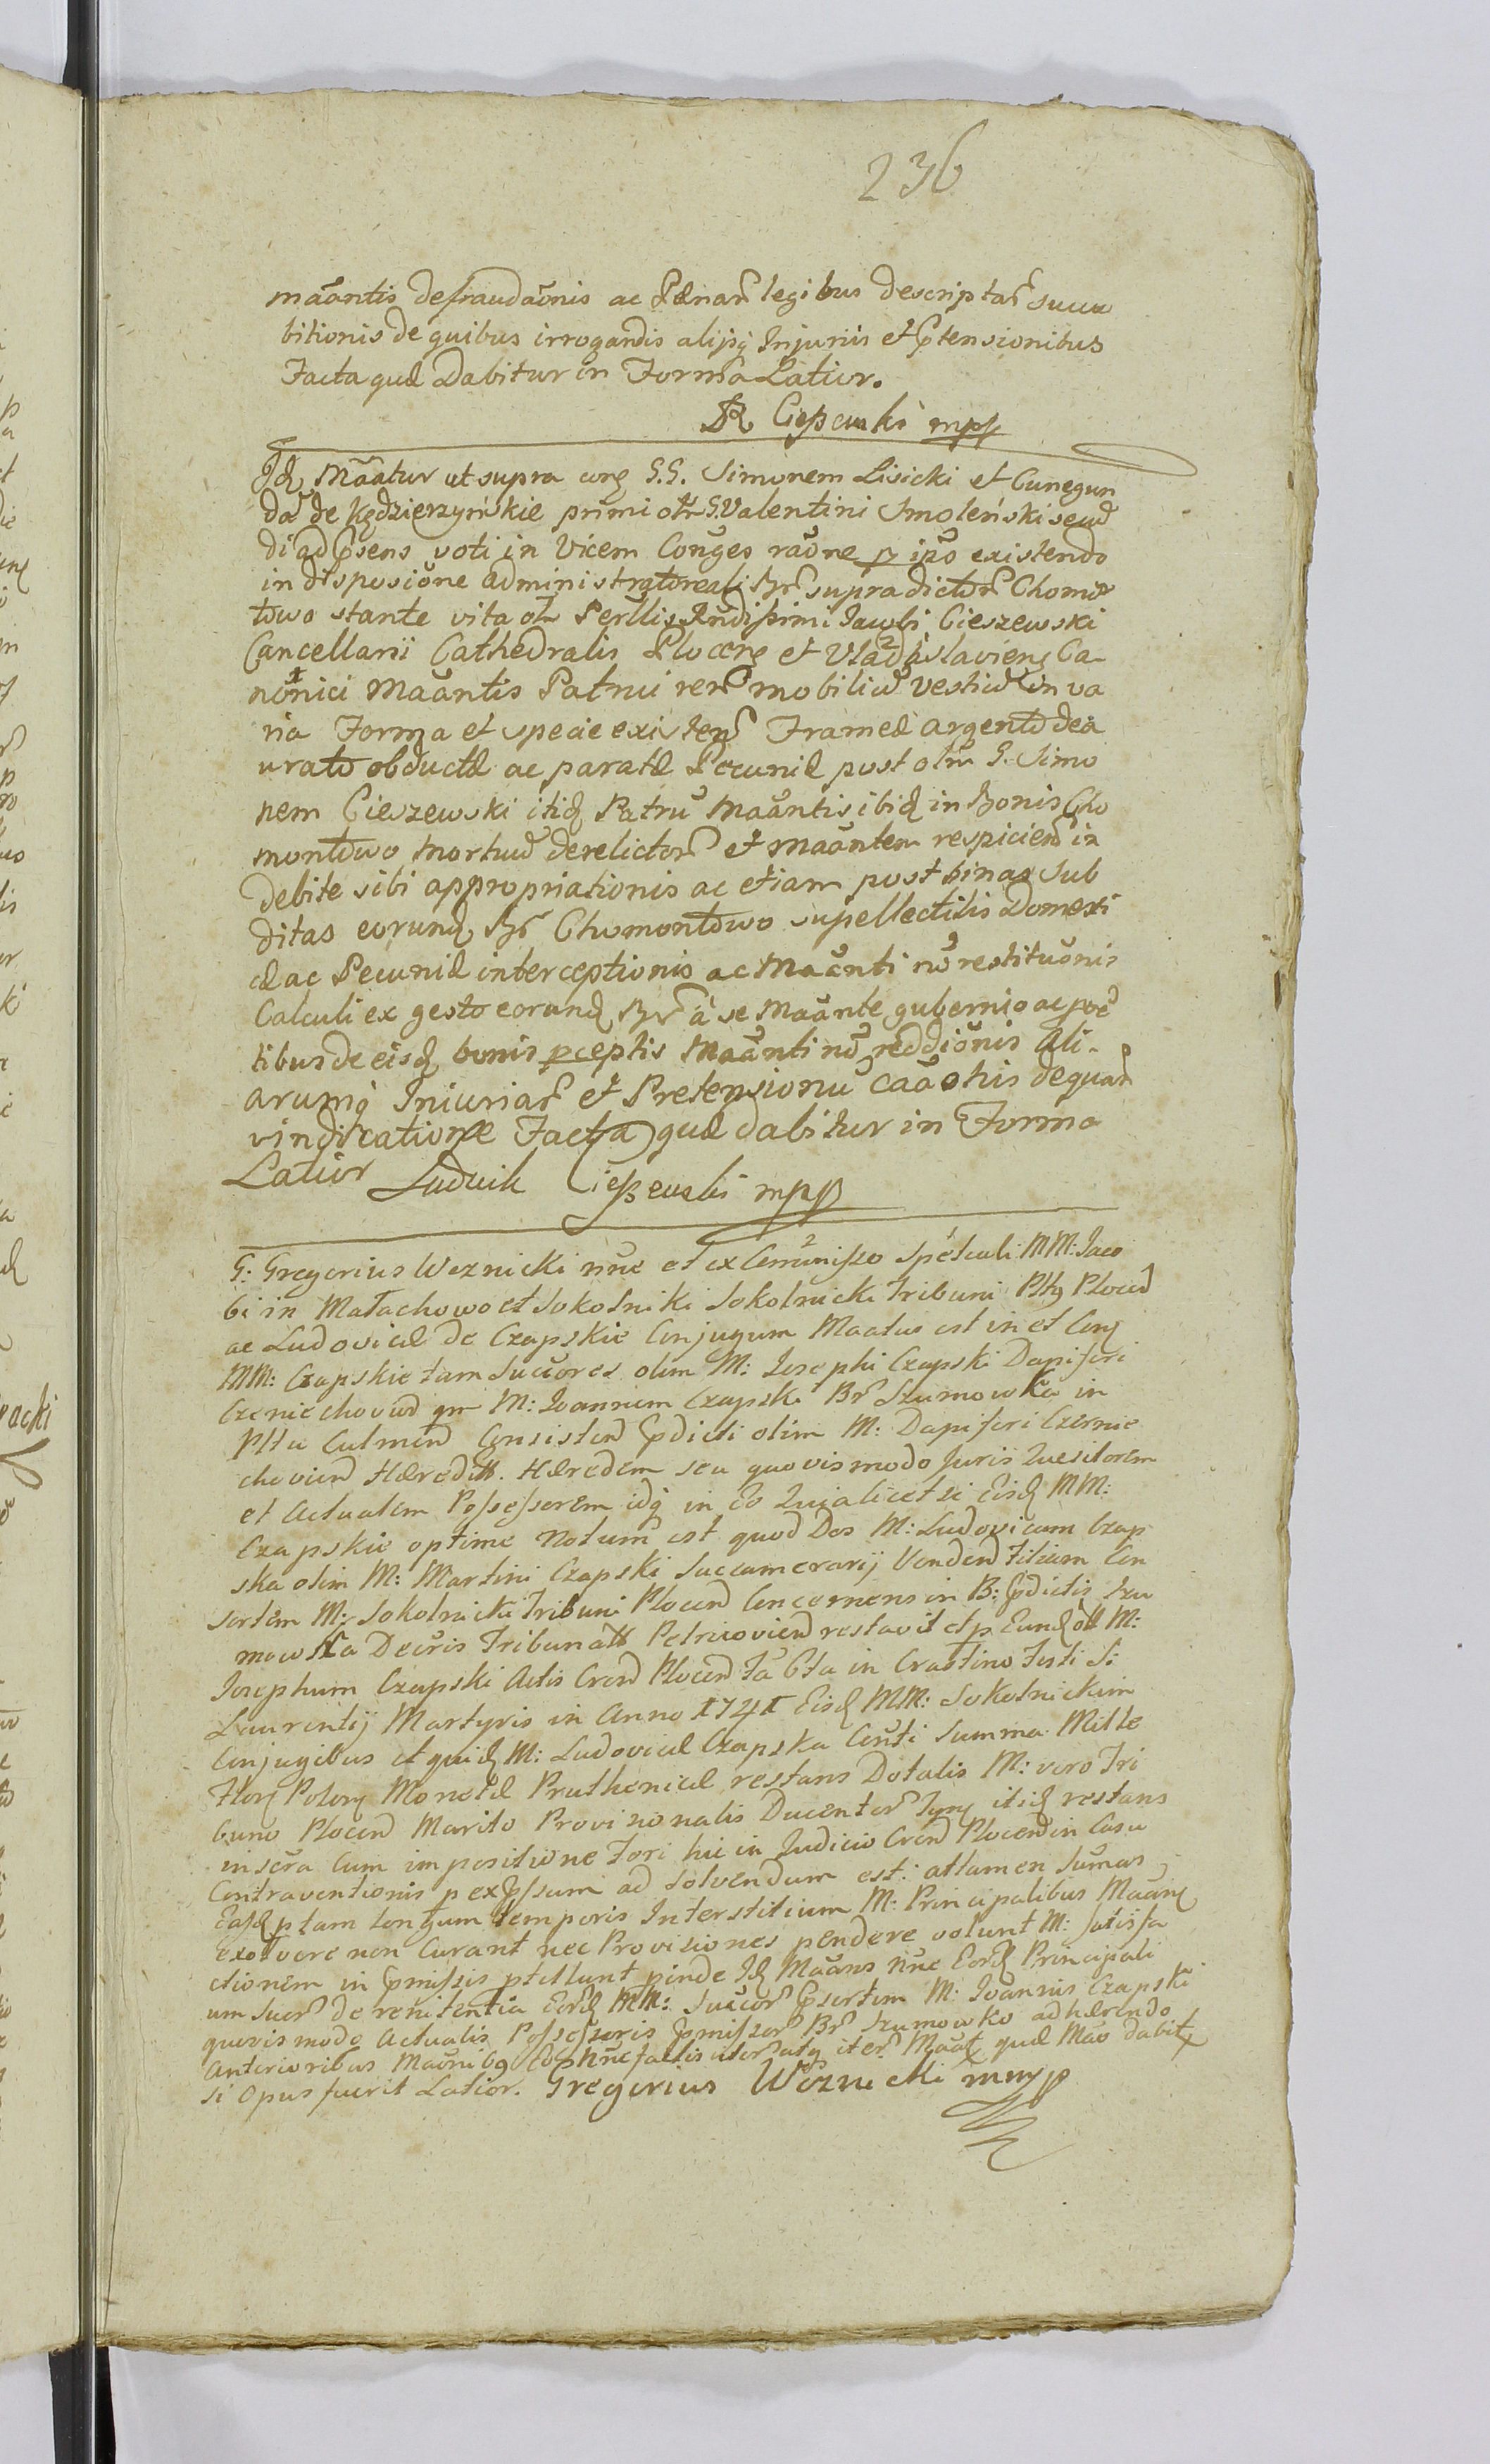 236
mãantis defraudaõnis ac Pænar legibus descriptar succu
bitionis de quibus irrogandis alijsq Injuriis et Ptensionibus
Facta quæ Dabitur in Forma Latior.
Cieszewski mpp
Idq Mãatur ut supra corq G.G. Simonem Lisicki et Cunegun
dã de Kędzierzyńskie primi olr G. Valentini Smoleński secud
di ad Psens voti in Vicem Conges raõne p ipõ existendo
in dispositiõne administratoreali Br supradictor Chomę
towo stante vita ol Perllis Rndissimi Jacobi Cieszewski
Cancellarii Cathedralis Plocens et Vladislaviens Ca-
nonici Mãantis Patrui rer mobiliũ vestiũ in va
ria Forma et specie existen Frameæ argento dea
urato obductæ ac paratæ Pecuniæ post olm G. Simo
nem Cieszewski itidq Patru Mãantis ibidq in Bonis Cho
montowo mortuũ derelictor et Mãantem respicien in
debite sibi appropriationis ac etiam post binas sub
ditas eorundq Br Chomontowo supellectilis Domesti
cæ ac Pecuniæ interceptionis ac Mãanti nõ restituõnis
Calculi ex gesto eorundq Br à se Mãante gubernio ac pven
tibus de eisdq bonis pceptis Mãanti nõ reddiõnis Ali-
arumq Iniuriar et Pretensionũ caã his de quar
vindicatione Facta quæ dabitur in Forma
Latior Ludwik Cieszewski mpp
G: Gregorius Woznicki nũc et ex Cõmmisso Spectali MM: Jaco
bi in Małachowo et Sokolniki Sokolnicki Tribuni Pltus Plocen
ac Ludovicæ de Czapskie Conjugum Maatus est in et Conq
MM: Czapskie tam Succores olim M: Josephi Czapski Dapiferi
Czerniechovien qm M: Joannem Czapski Br Szumowka in
Pltu Culmen Consisten Pdicti olim M: Dapiferi Czernie
chovien Hæredis. Hæredem seu quovismodo Juris Quesitorem
et Actualem Possessorem idq in Eo Quia licet si Eisdq MM:
Czapskie optime notum est quod Dos M: Ludovicam Czap
ska olim M: Martini Czapski Succamerarij Venden Filiam Con
sortem M: Sokolnicki Tribuni Plocen Concernens in B: Pdictis Szu
mowka Decris Tribunalt Petricovien restavit et p Eundq oll M:
Josephum Czapski Actis Cren Plocen Fã Gta in Crastino Festi S:
Laurentij Martyris in Anno 1741 Eisdq MM: Sokolnickim
Conjugibus et quidq M: Ludovicæ Czapska Centi Summa Mille
Flor Polon Monetæ Pruthenicæ restans Dotalis M: vero Tri
buno Plocen Marito Provisionalis Ducentor Tynf itidq restans
inscra cum impositione Fori hic in Judicio Cren Plocen in Casu
Contraventionis p expssum ad Solvendum est: attamen Sumas
Easdq p tam longum temporis Interstitium M: Principalibus Mãanq
exolvere non Curant nec Provisiones pendere volunt M: satisfa
ctionem in Pmissis pttellunt pinde Idq Mãans nũc Eordq Principali
um Suor de renitentia Eordq MM: Succor Psertem M: Joannis Czapski
quovis modo Actualis Possessoris Pmissor Br Szumowko adhærendo
anterioribus Mãonibq Eos nũc factis iter atq iter Mãat quæ Mão dabitr
si Opus fuerit Latior. Gregorius Woznicki mpp